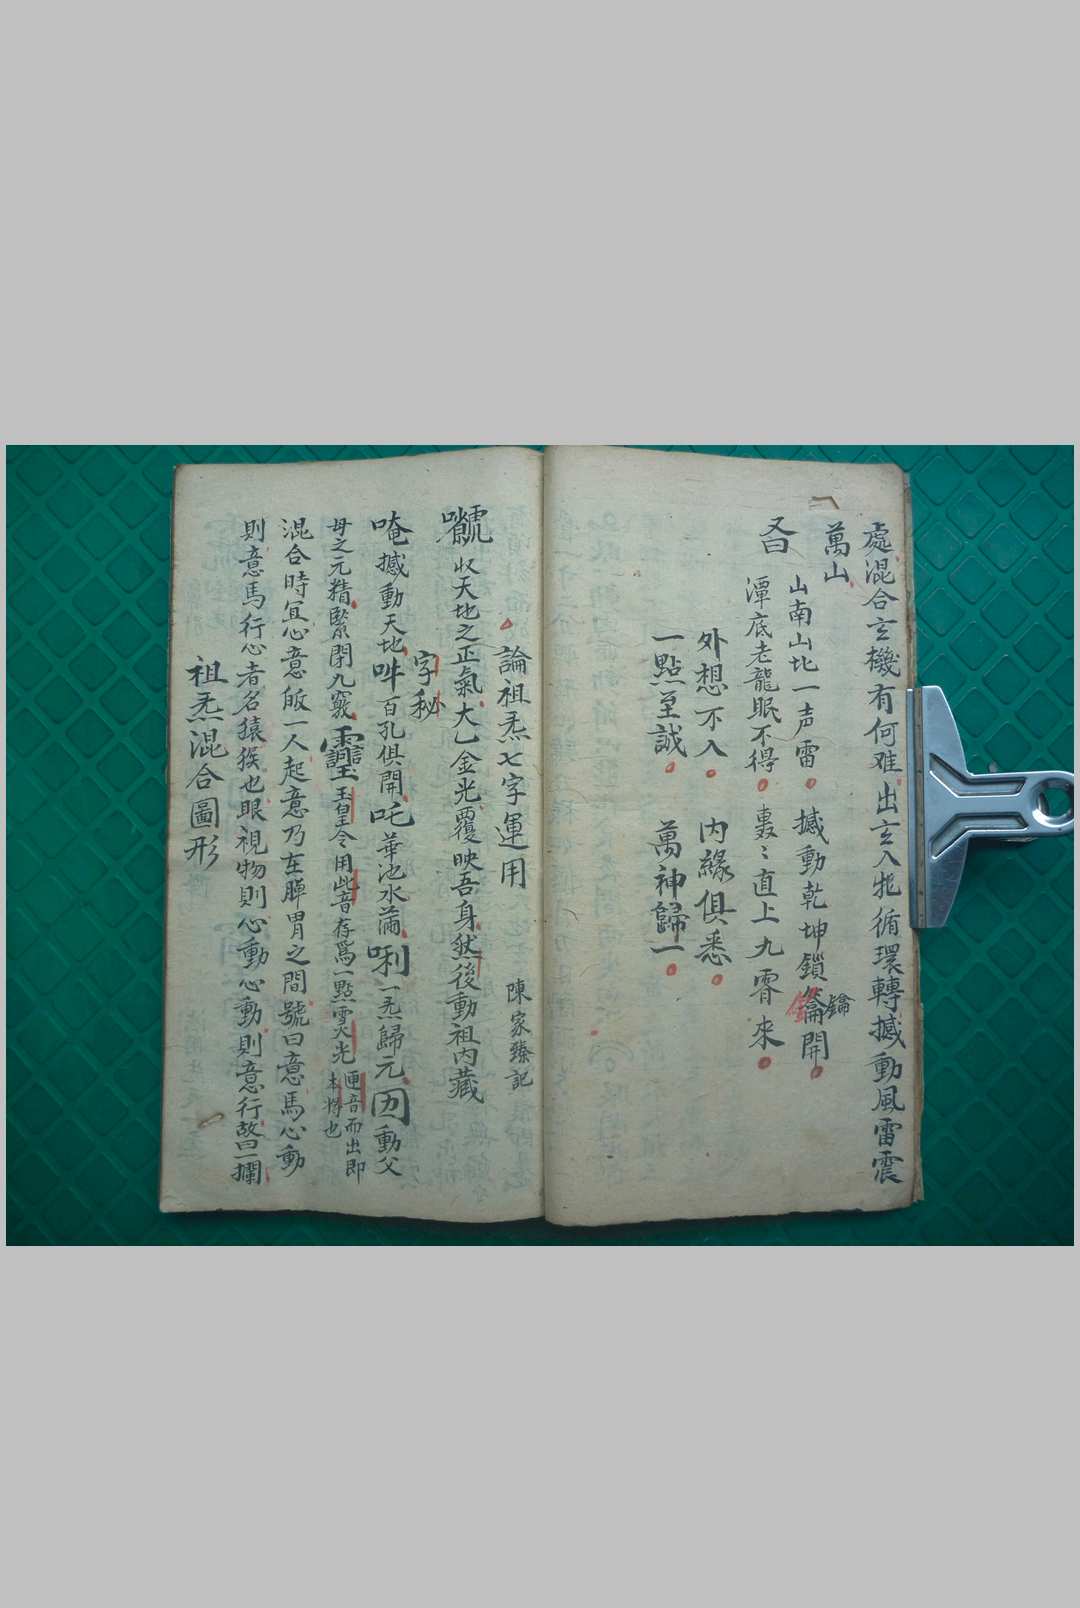 處混合玄機有何难出玄入牝循環轉撼動風雷震
萬山
山南山北一声雷撼動乾坤鎖鑰開
鑰
又曰
潭底老龍眠不得轟〻直上九霄來
外想不入 内緣俱悉
一點至誠 萬神歸一
論祖炁七字運用 陳家臻記
收天地之正氣大乙金光覆映吾身然後動祖内藏
字秘
唵撼動天地吽百孔俱開吒華池水滿唎一炁歸元囙動父
母之元精緊閉九竅 玉皇令用此音存爲一點雪火光
匣音而出即
本将也
混合時冝心意皈一人起意乃在脾胃之間號曰意馬心動
則意馬行心者名猿猴也眼視物則心動心動則意行故曰一攔
祖炁混合圖形